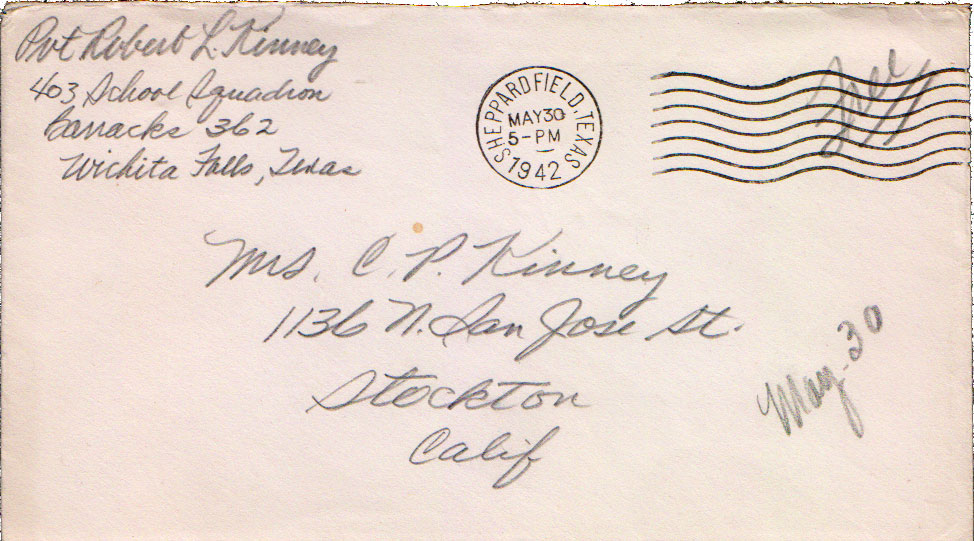 Pvt Robert L. Kinney
403 School Squadron
Barracks 362
Wichita Falls, Texas
SHEPPARD FIELD, TEXAS
MAY 30
5-PM
1942
Free
Mrs. C. P. Kinney
1136 N. San Jose St.
Stockton
Calif
May. 30